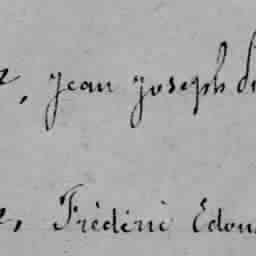 , Jean Joseph
, Frédéric Edou